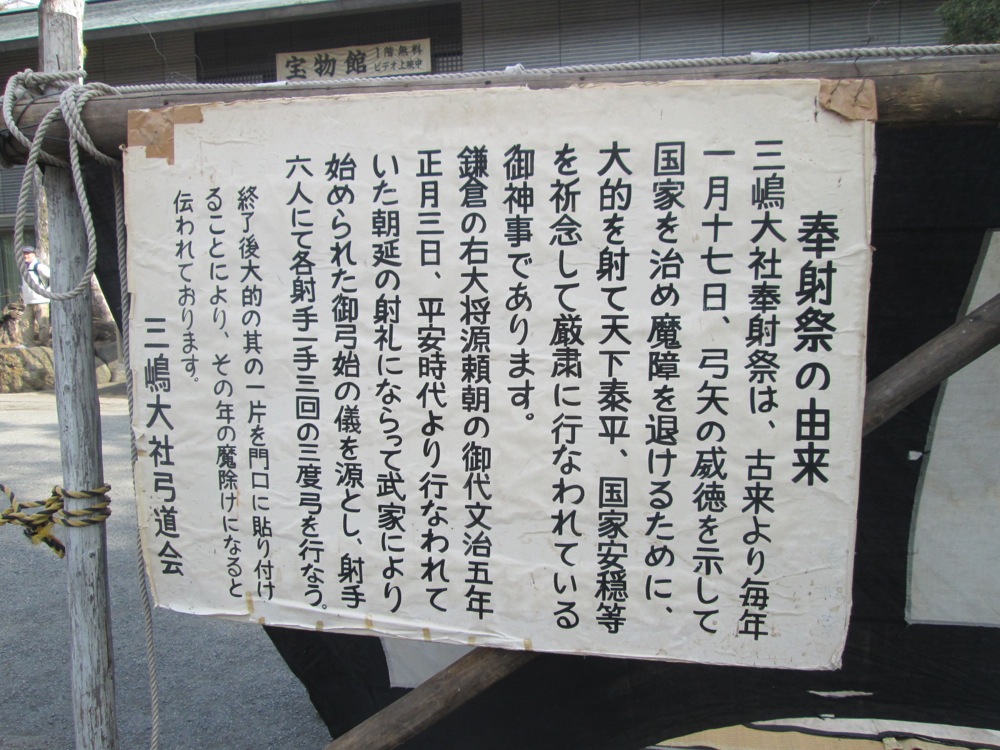 宝物館
1階無料
ビデオ上映中
奉射祭の由来
三嶋大社奉射祭は、古来より毎年
一月十七日、弓矢の威徳を示して
国家を治め魔障を退けるために、
大的を射て天下泰平、国家安穏等
を祈念して厳粛に行なわれている
御神事であります。
鎌倉の右大将源頼朝の御代文治五年
正月三日、平安時代より行なわれて
いた朝延の射礼にならって武家により
始められた御弓始の儀を源とし、射手
六人にて各射手一手三回の三度弓を行なう。
終了後大的の其の一片を門口に貼り付け
ることにより、その年の魔除けになると
伝われております。
三嶋大社弓道会